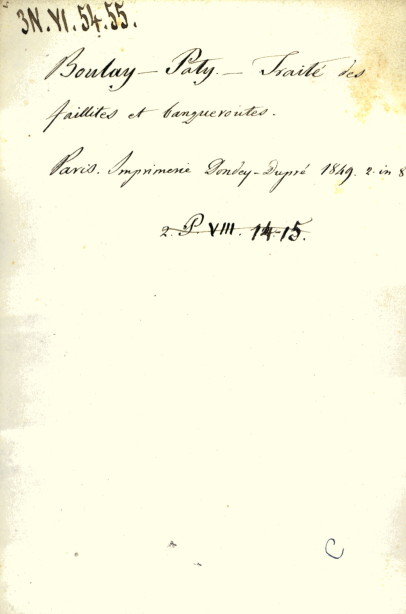 3N.VI.54.55.
Boulay-Paty. – Traité des
faillites et banqueroutes.
Paris. Imprimerie Dondey-Dupré 1849. 2. in 8
2. P. VIII. 14-15.
C